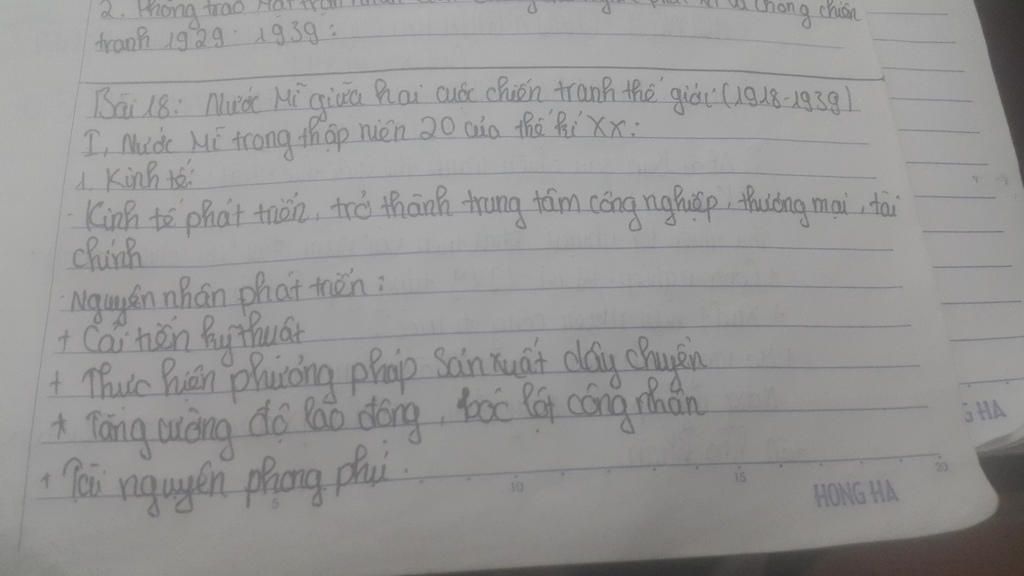 2. Phong trào Mặt trận Nhân
chống chiến
tranh 1929 - 1939:
Bài 18: Nước Mĩ giữa hai cuộc chiến tranh thế giới (1918-1939)
I, Nước Mĩ trong thập niên 20 của thế kỉ XX:
1. Kinh tế:
- Kinh tế phát triển, trở thành trung tâm công nghiệp, thương mại, tài
chính
- Nguyên nhân phát triển:
+ Cải tiến kỹ thuật
+ Thực hiện phương pháp sản xuất dây chuyền
+ Tăng cường độ lao động, bóc lột công nhân
+ Tài nguyên phong phú.
5 10 15 20
HONG HA
G HA